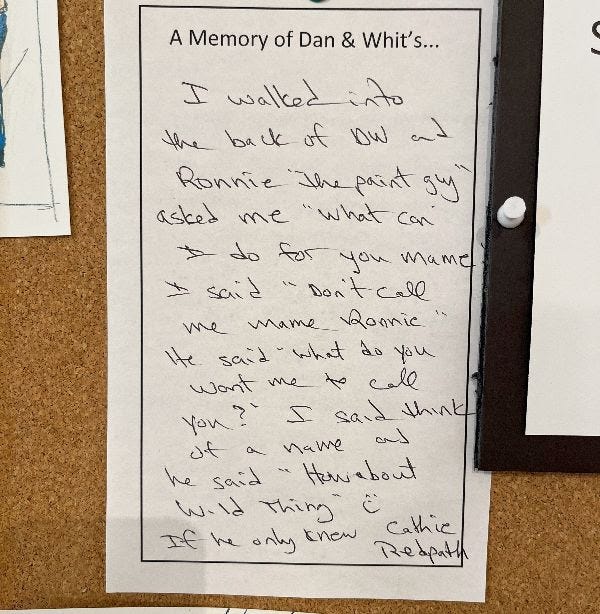 A Memory of Dan & Whit's...
I walked into
the back of DW and
Ronnie "The paint guy"
asked me "what can
I do for you mame"
I said "Don't call
me mame Ronnie"
He said "what do you
want me to call
you?" I said think
of a name and
he said "How about
Wild Thing" ☺
If he only knew Cathie
Redpath
S